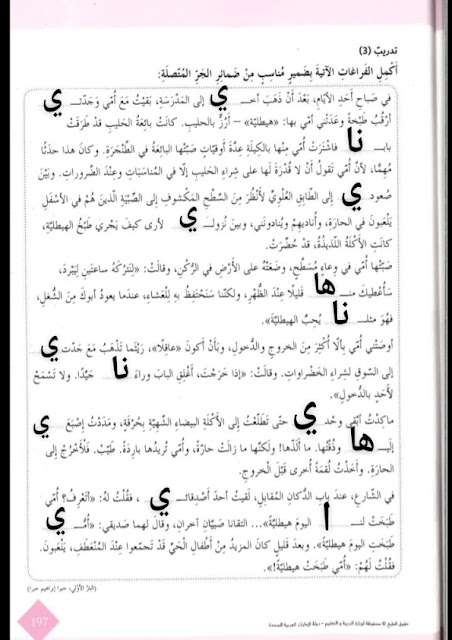 تدريبٌ (3)
أَكْمِلِ الفَراغاتِ الآتيةَ بِضَميرٍ مُناسِبٍ مِنْ ضَمائِرِ الجَرِّ المُتَّصِلَةِ:
في صَباحِ أَحَدِ الأَيّامِ، بَعْدَ أَنْ ذَهَبَ أَخـ ي إلى المَدْرَسَةِ، بَقيتُ مَعَ أُمّي وَجَدّتـ ي
أَرْقُبُ طَبْخَةً وعَدَتْني أمّي بها: «هيطليّة» – أَرُزٌّ بالحليبِ. كانَتْ بائِعَةُ الحَليبِ قدْ طَرَقَتْ
بابَـ نا فاشْتَرَتْ أُمّي مِنْها بالكيلَةِ عِدَّةَ أُوقيّاتٍ صَبَّتْها البائِعةُ في الطَّنْجَرَةِ. وكانَ هذا حدَثًا
مُهِمًّا، لأنَّ أُمّي تَقولُ أنْ لا قُدْرَةَ لَها على شِراءِ الحَليبِ إلّا في المُناسَباتِ وعِنْدَ الضَّروراتِ. وبَيْنَ
صُعودِ ي إلى الطّابِقِ العُلْوِيِّ لِأَنْظُرَ مِنَ السَّطْحِ المَكْشوفِ إلى الصِّبْيَةِ الّذينَ هُمْ في الأَسْفَلِ
يَلْعَبونَ في الحارَةِ، وأُناديهِمْ ويُنادونَني، وبينَ نُزولـ ي لأرى كيفَ يَجْري طَبْخُ الهيطليّةِ،
كانَتِ الأَكْلَةُ اللّذيذَةُ، قدْ حُضِّرَتْ.
صَبَّتْها أُمّي في وِعاءٍ مُسَطَّحٍ، وضَعَتْهُ على الأَرْضِ في الرُّكْنِ، وقالَتْ: «لِنَتْرُكَهُ ساعَتَينِ لِيَبْرُدَ،
سَأُعْطيكَ منـ ها قليلًا عِنْدَ الظُّهْرِ، ولكنّنا سَنَحْتَفِظُ بِهِ لِلْعَشاءِ، عندَما يعودُ أبوكَ مِنَ الشُّغلِ،
فهُوَ مثلـ نا يُحِبُّ الهيطليّةَ».
أوصَتْني أُمّي بِألّا أُكْثِرَ مِنَ الخروجِ والدُّخولِ، وبَأنْ أكونَ «عاقِلًا»، رَيْثَما تَذْهَبُ مَعَ جَدّتـ ي
إلى السّوقِ لشِراءِ الخَضْراواتِ. وقالَتْ: «إذا خَرَجْتَ، أَغْلِقِ البابَ وراءَ نا جَيّدًا. ولا تَسْمَحْ
لأَحَدٍ بالدُّخولِ».
ماكِدْتُ أبْقى وحْد ي حتّى تَطَلَّعْتُ إلى الأَكْلَةِ البيضاءِ الشَّهِيَّةِ بِحُرْقَةٍ، ومَدَدْتُ إِصْبَعـ ي
إليـ ها وذُقْتُها. ما أَلَذَّها! ولكنَّها ما زالَتْ حارّةً، وأُمّي تُريدُها بارِدَةً. طَيّبٌ. فَلأَخْرُجْ إلى
الحارَةِ. وأخَذْتُ لُقْمةً أُخرى قَبْلَ الخروجِ.
في الشّارعِ، عندَ بابِ الدُّكانِ المُقابِلِ، لَقيتُ أحدَ أصْدِقائـ ي ، فقُلْتُ لهُ: «أتَعْرِفُ؟ أُمّي
طَبَخَتْ لنـ ا اليومَ هيطليّةً»... التقانا صَبِيّانِ آخرانِ، وقالَ لهما صَديقي: «أُمّـ ي
طَبَخَتِ اليومَ هيطليّةً». وبعدَ قليلٍ كانَ المزيدُ مِنْ أَطْفالِ الحَيِّ قَدْ تَجَمّعوا عِنْدَ المُنْعَطَفِ، يَلْعَبونَ.
فَقُلْتُ لَهُمْ: «أُمّي طَبَخَتْ هيطليّةً!».
(البئرُ الأولى، جبرا إبراهيم جبرا)
197
حقوق الطبع © محفوظة لوزارة التربية و التعليم - دولة الإمارات العربية المتحدة